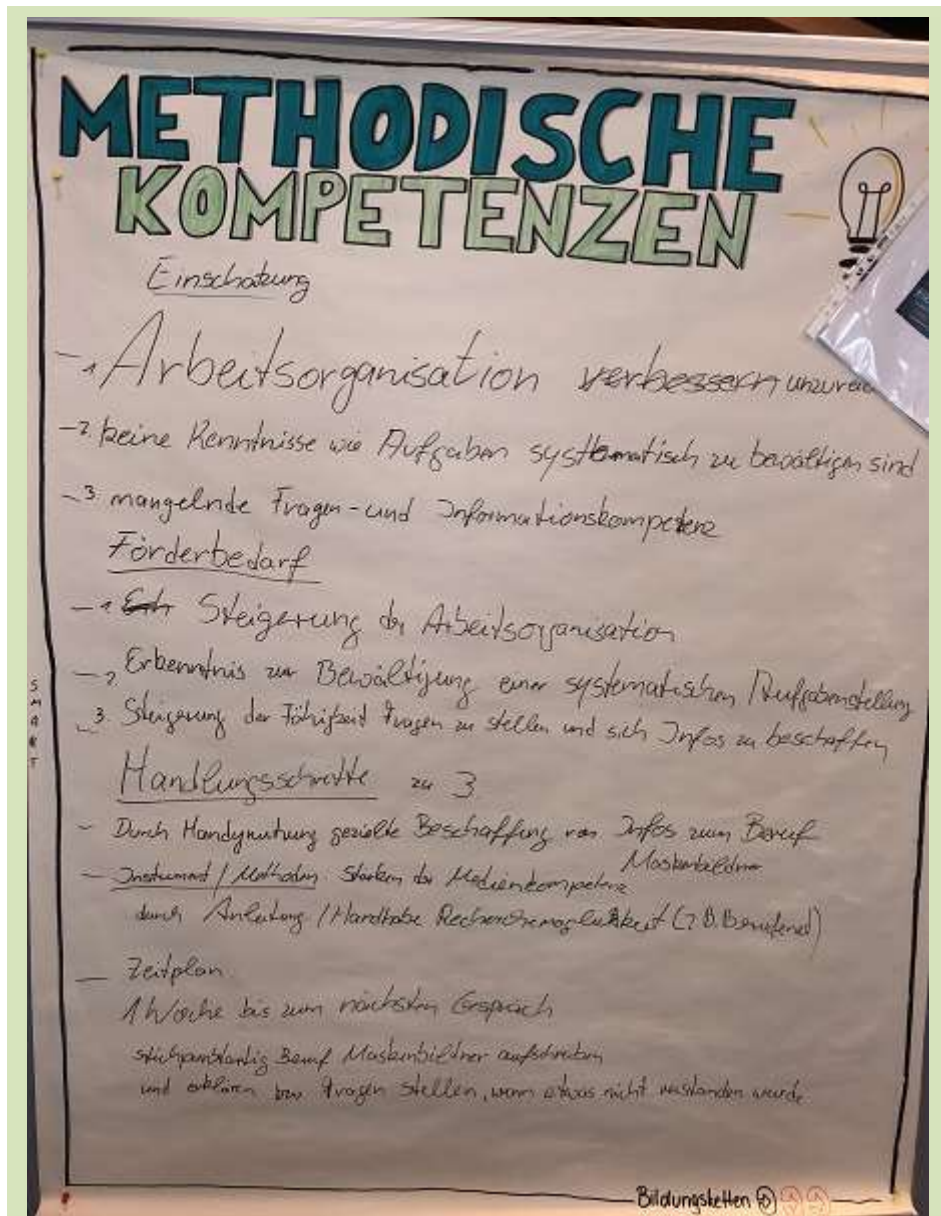 METHODISCHE
KOMPETENZEN
Einschätzung
- 1 Arbeitsorganisation verbessern
- 2. keine Kenntnisse wie Aufgaben systematisch zu bewältigen sind
- 3. mangelnde Fragen- und Informationskompetenz
Förderbedarf
- 1 Steigerung der Arbeitsorganisation
- 2 Erkenntnis zur Bewältigung einer systematischen Aufgabenstellung
- 3. Steigerung der Fähigkeit Fragen zu stellen und sich Infos zu beschaffen
SMART
Handlungsschritte zu 3
- Durch Handynutzung gezielte Beschaffung von Infos zum Beruf
Maskenbildner
- Instrument / Methoden Stärken der Medienkompetenz
durch Anleitung / Handhabe Recherchemöglichkeit (z.B. Berufenet)
- Zeitplan
1 Woche bis zum nächsten Gespräch
stichpunktartig Beruf Maskenbildner aufschreiben
und erklären bzw Fragen stellen, wenn etwas nicht verstanden wurde
Bildungsketten